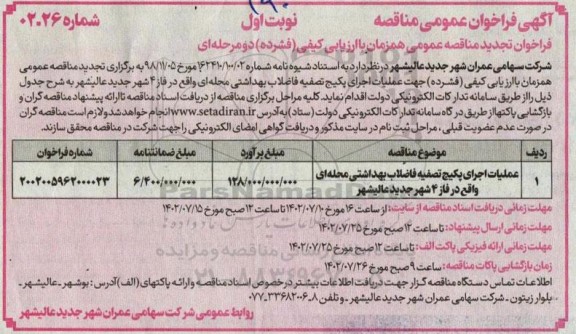 آگهی فراخوان عمومی مناقصه
نوبت اول
شماره ۰۲.۲۶
فراخوان تجدید مناقصه عمومی همزمان با ارزیابی کیفی (فشرده) دو مرحله‌ای
شرکت سهامی عمران شهر جدید عالیشهر در نظر دارد به استناد شیوه‌نامه شماره ۱۶۲۴۱۰/۱۰۰/۰۲ مورخ ۹۸/۱۱/۰۵ به برگزاری تجدید مناقصه عمومی
همزمان با ارزیابی کیفی (فشرده) جهت عملیات اجرای پکیج تصفیه فاضلاب بهداشتی محله‌ای واقع در فاز ۴ شهر جدید عالیشهر به شرح جدول
ذیل را از طریق سامانه تدارکات الکترونیکی دولت اقدام نماید. کلیه مراحل برگزاری مناقصه از دریافت اسناد مناقصه تا ارائه پیشنهاد مناقصه گران و
بازگشایی پاکتها از طریق درگاه سامانه تدارکات الکترونیکی دولت (ستاد) به آدرس www.setadiran.ir انجام خواهد شد ولازم است مناقصه گران
در صورت عدم عضویت قبلی، مراحل ثبت نام در سایت مذکور و دریافت گواهی امضای الکترونیکی را جهت شرکت در مناقصه محقق سازند.
ردیف موضوع مناقصه مبلغ برآورد مبلغ ضمانتنامه شماره فراخوان
۱ عملیات اجرای پکیج تصفیه فاضلاب بهداشتی محله‌ای واقع در فاز ۴ شهر جدید عالیشهر ۱۲۸/۰۰۰/۰۰۰/۰۰۰ ۶/۴۰۰/۰۰۰/۰۰۰ ۲۰۰۲۰۰۵۹۶۲۰۰۰۰۲۳
مهلت زمانی دریافت اسناد مناقصه از سایت: از ساعت ۱۶ مورخ ۱۴۰۲/۰۷/۱۰ تا ساعت ۱۲ صبح مورخ ۱۴۰۲/۰۷/۱۵
مهلت زمانی ارسال پیشنهاد: تا ساعت ۱۲ صبح مورخ ۱۴۰۲/۰۷/۲۵
مهلت زمانی ارائه فیزیکی پاکت الف: تا ساعت ۱۲ صبح مورخ ۱۴۰۲/۰۷/۲۵
زمان بازگشایی پاکات مناقصه: ساعت ۹ صبح مورخ ۱۴۰۲/۰۷/۲۶
اطلاعات تماس دستگاه مناقصه گزار جهت دریافت اطلاعات بیشتر در خصوص اسناد مناقصه و ارائه پاکتهای (الف) آدرس: بوشهر ـ عالیشهر ـ
بلوار زیتون ـ شرکت سهامی عمران شهر جدید عالیشهر ـ و تلفن ۸ـ۰۷۷۳۳۶۸۲۰۶
روابط عمومی شرکت سهامی عمران شهر جدید عالیشهر